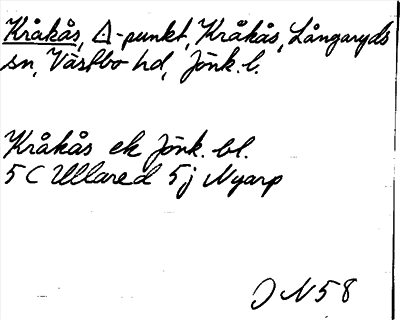 Kråkås, △-punkt, Kråkås, Långaryds
sn, Västbo hd, Jönk. l.
Kråkås ek Jönk. bl.
5 C Ullared 5j Nyarp
JN 58